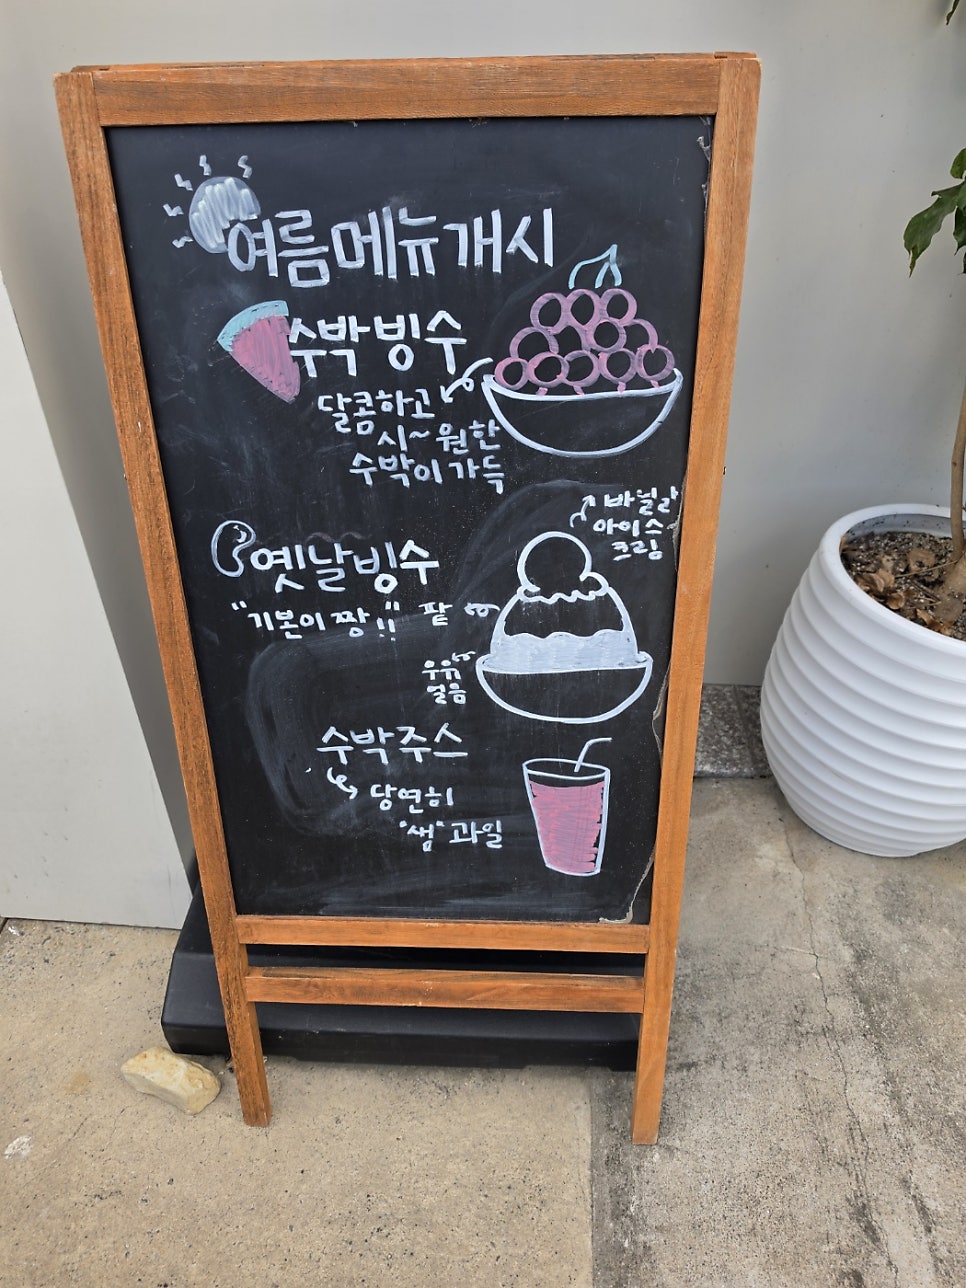 여름메뉴개시
수박빙수
달콤하고
시~원한
수박이 가득
바닐라
아이스
크림
옛날빙수
"기본이 짱!!"
팥
우유
얼음
수박주스
당연히
"쌩" 과일